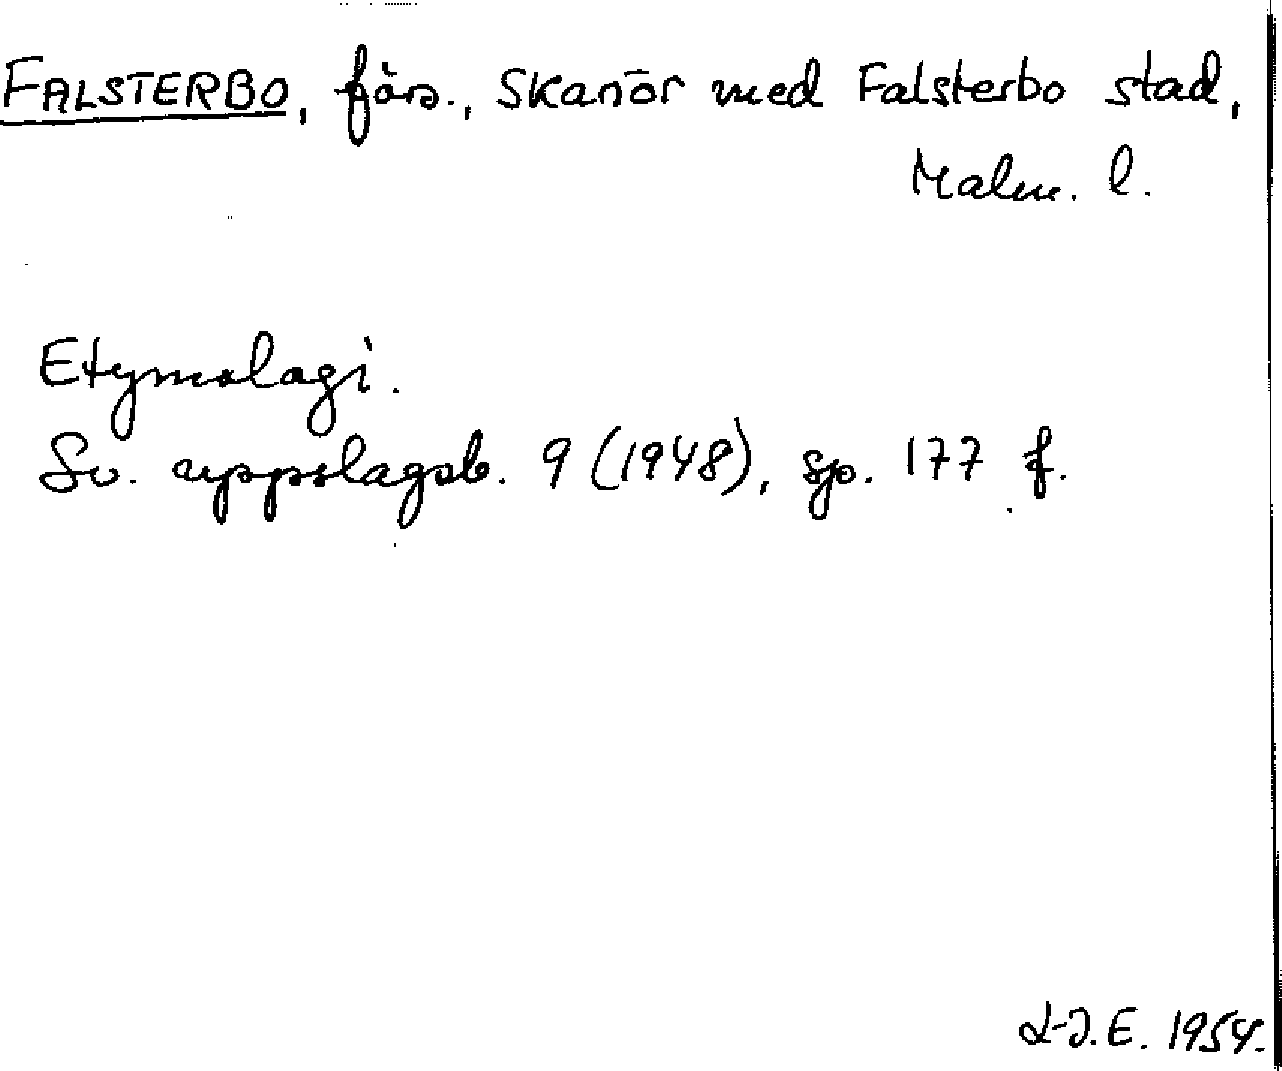 FALSTERBO, förs., Skanör med Falsterbo stad,
Malm. l.
Etymologi.
Sv. uppslagsb. 9 (1948), sp. 177 f.
L-J.E. 1954.